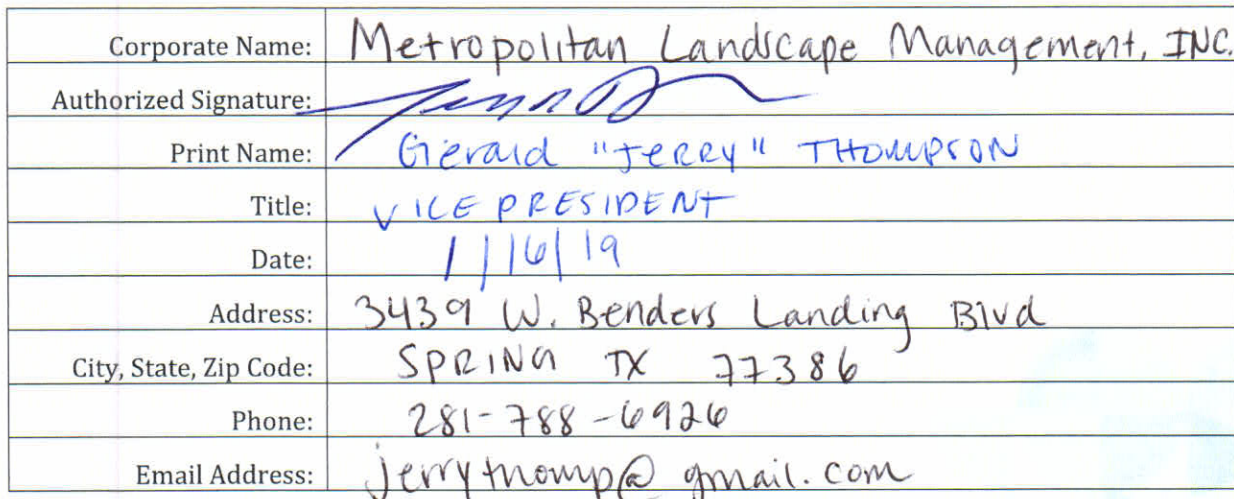 Corporate Name: Metropolitan Landscape Management, INC.
Authorized Signature:
Print Name: Gerald "JERRY" THOMPSON
Title: VICE PRESIDENT
Date: 1/16/19
Address: 3439 W. Benders Landing Blvd
City, State, Zip Code: SPRING TX 77386
Phone: 281-788-6926
Email Address: jerrythomp@gmail.com